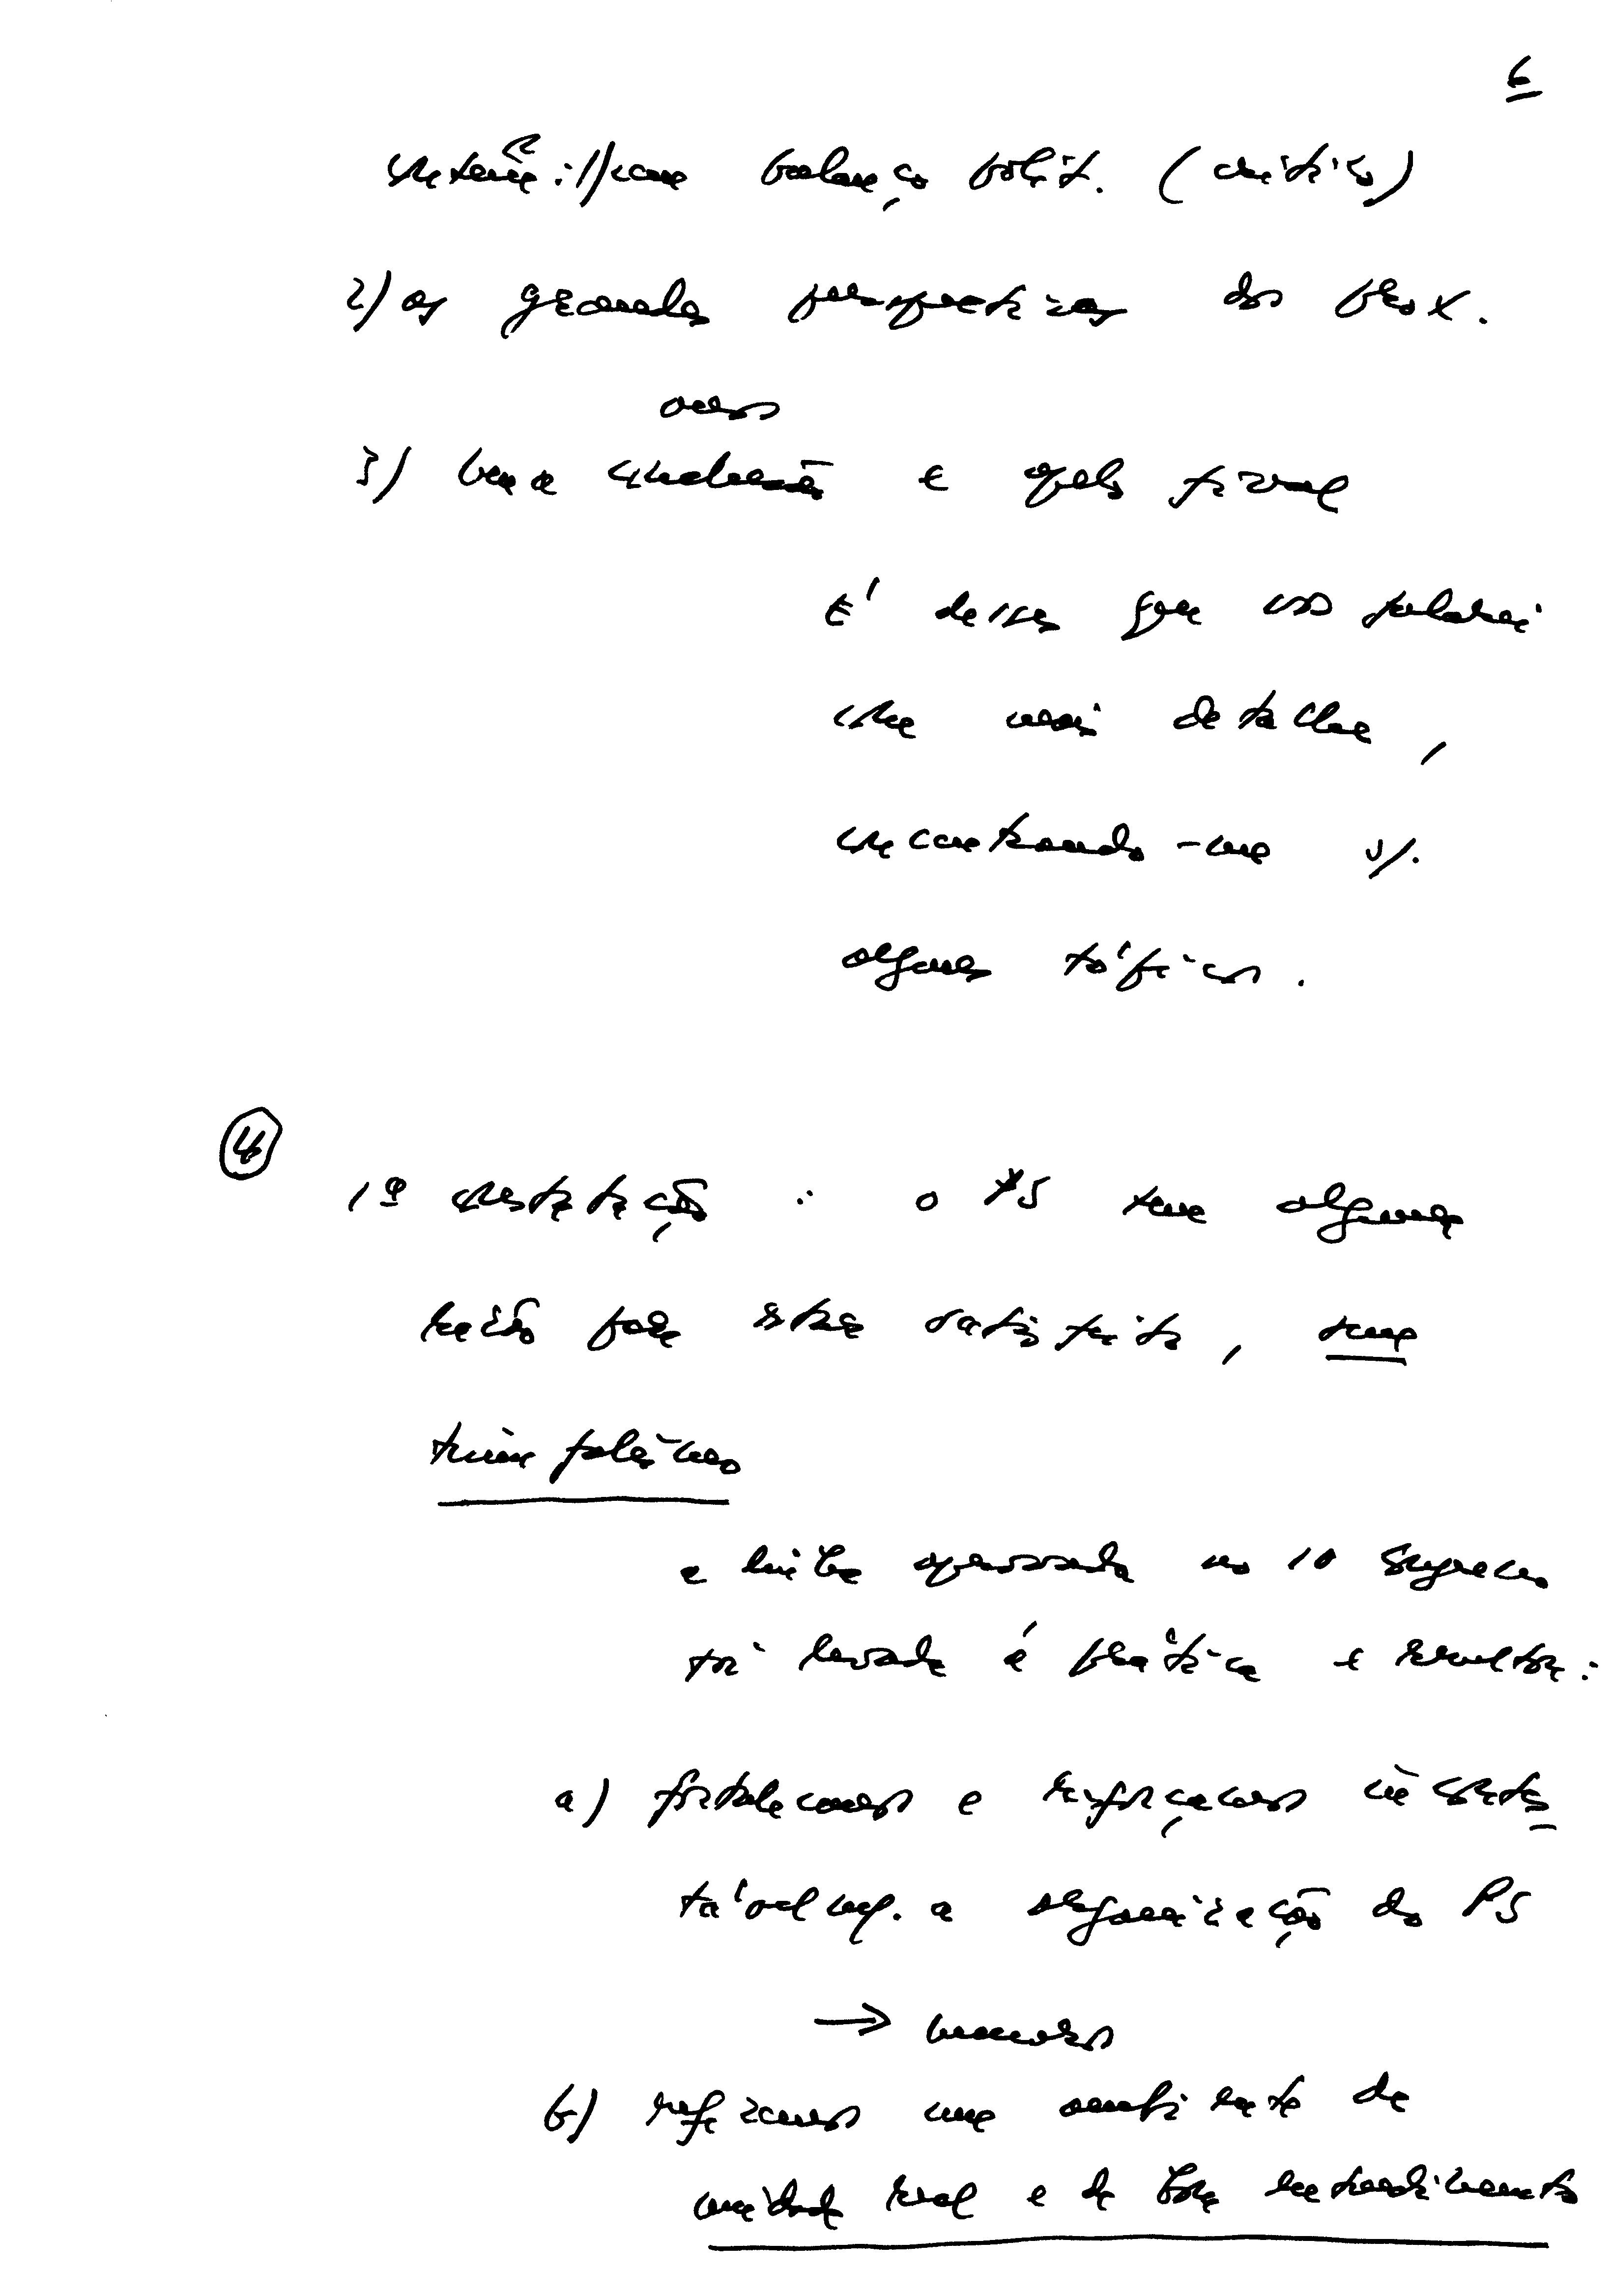 6
balanço polít. (crítico)
2) as grandes perspectivas do prox.
3) uma e apelo final
É desses que vos falarei
em mais detalhe,
concentrando-me s/.
alguns tópicos.
4
1ª constatação: o PS tem alguma
razão para estar satisfeito, sem
triunfalismo
a linha aprovada no 10 Congresso
foi levada à prática e resultou:
a) fortalecemos e reforçamos incontes
tavelm. a organização do PS
→ números
b) refizemos um ambiente de
unidade real e de bom entendimento